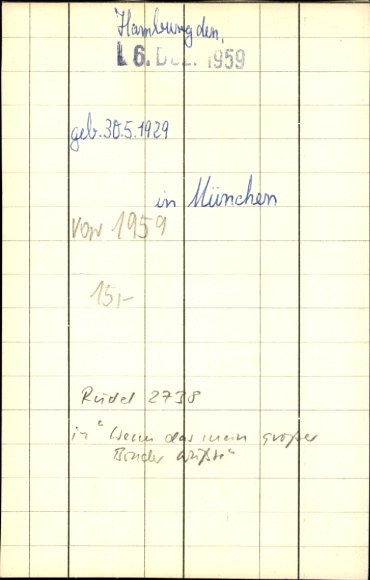 Hamburg den,
6. Dez. 1959
geb. 30.5.1929
in München
vor 1959
15,-
Rüdel 2738
in "Wenn das mein großer
Bruder wüßte"